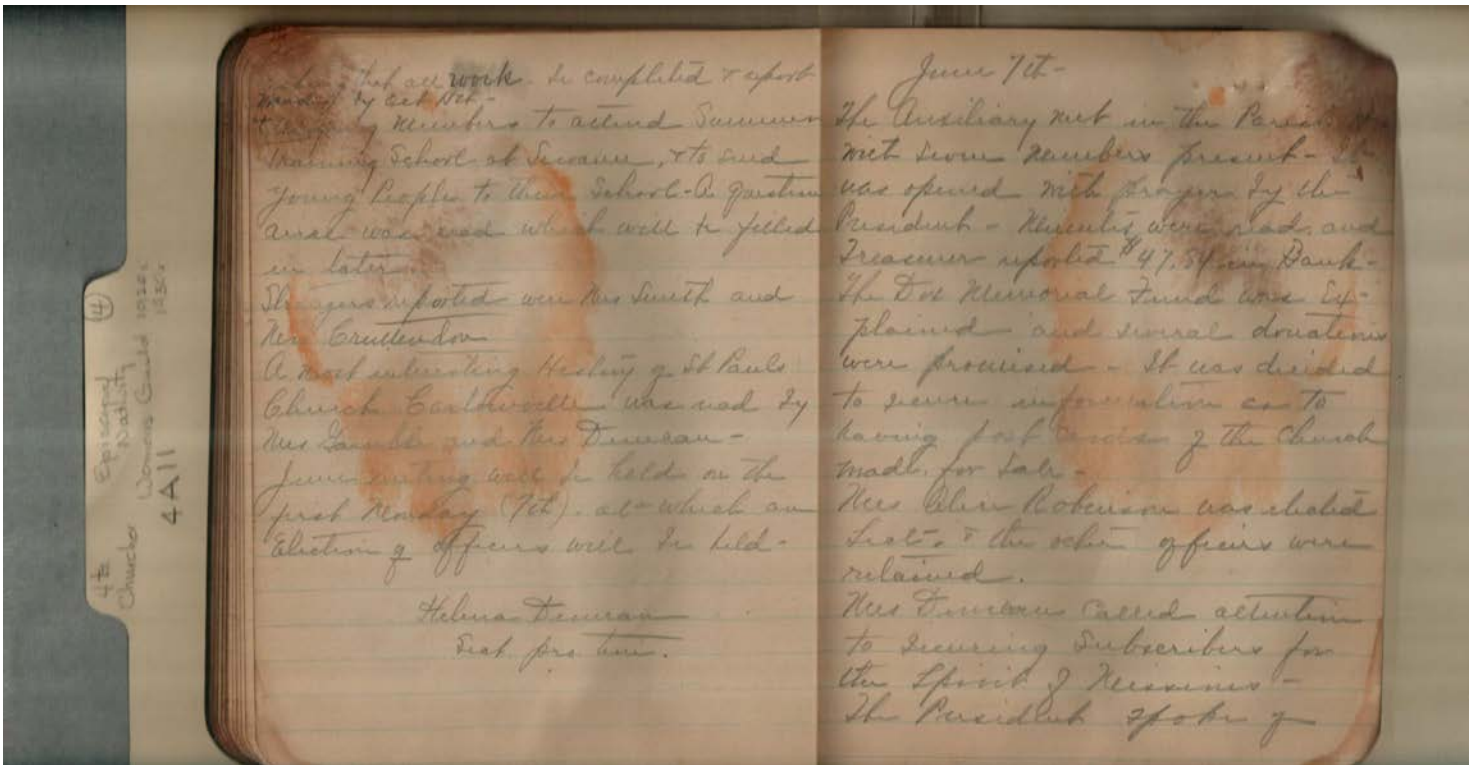 that all work - be completed & report
made by Oct 1st -
Members to attend Summer
Training School at Sewanee, & to send
Young People to their School - A question
was read which will be filled
in later.
Strangers reported were Mrs Smith and
Mrs Crittendon
A most interesting History of St Pauls
Church Carlowville was read by
Mrs Gamble and Mrs Duncan -
June meeting will be held on the
first Monday (7th). at which an
Election of officers will be held -
Helena Duncan
Sect. pro tem.
June 7th -
The Auxiliary met in the Parish
with seven members present - It
was opened with prayer by the
President - Minutes were read and
Treasurer reported $47.84 in Bank -
The Dox Memorial Fund was Ex-
plained and several donations
were promised - It was decided
to secure information as to
having post cards of the Church
made for Sale -
Mrs Robinson was elected
Sect - & the other officers were
retained.
Mrs Duncan called attention
to securing Subscribers for
the Spirit of Missions -
The President spoke of
14
4ta
Church Episcopal
Nativity
Womens Guild 1920s
1930s
4A11